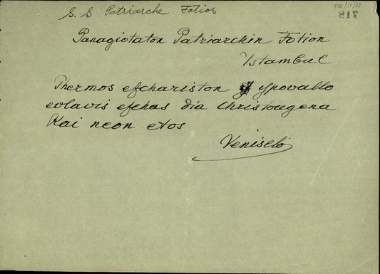 S. S Patriarche Fotios
818
Panagiotaton Patriarchin Fotion
Istambul
Thermos efchariston ypovallo
evlavis efchas dia Christougena
Kai neon etos
Veniselo